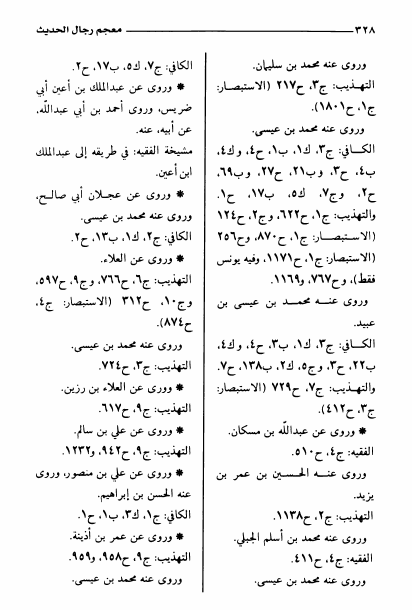 ٣٢٨ معجم رجال الحديث
وروى عنه محمد بن سليمان.
التهذيب: ج٣، ح٢١٧ (الاستبصار:
ج١، ح١٨٠١).
وروى عنه محمد بن عيسى.
الكافي: ج٣، ك١، ب١، ح٤، وك٤،
ب٤، ح٣، وب٢١، ح٢٧، وب٦٩،
ح٢، وج٧، ك٥، ب١٧، ح١.
والتهذيب: ج١، ح٦٢٢، وج٢، ح١٢٤
(الاستبصار: ج١، ح٨٧٠، وح٢٥٦
(الاستبصار: ج١، ح١١٧١، وفيه يونس
فقط)، وح٧٦٧، و١١٦٩.
وروى عنه محمد بن عيسى بن
عبيد.
الكافي: ج٣، ك١، ب٣، ح٤، وك٤،
ب٢٢، ح٣، وج٥، ك٢، ب١٣٨، ح٧.
والتهذيب: ج٧، ح٧٢٩ (الاستبصار:
ج٣، ح٤١٢).
* وروى عن عبدالله بن مسكان.
الفقيه: ج٤، ح٥١٠.
وروى عنه الحسين بن عمر بن
يزيد.
التهذيب: ج٢، ح١١٣٨.
وروى عنه محمد بن أسلم الجبلي.
الفقيه: ج٤، ح٤١١.
وروى عنه محمد بن عيسى.
الكافي: ج٧، ك٥، ب١٧، ح٢.
* وروى عن عبدالملك بن أعين أبي
ضريس، وروى أحمد بن أبي عبدالله،
عن أبيه، عنه.
مشيخة الفقيه: في طريقه إلى عبدالملك
ابن أعين.
* وروى عن عجلان أبي صالح،
وروى عنه محمد بن عيسى.
الكافي: ج٢، ك١، ب١٣، ح٢.
* وروى عن العلاء.
التهذيب: ج٦، ح٧٦٦، وج٩، ح٥٩٧،
وج١٠، ح٣١٢ (الاستبصار: ج٤،
ح٨٧٤).
وروى عنه محمد بن عيسى.
التهذيب: ج٣، ح٧٢٤.
* وروى عن العلاء بن رزين.
التهذيب: ج٩، ح٦١٧.
* وروى عن علي بن سالم.
التهذيب: ج٩، ح٩٤٢، و١٢٣٢.
* وروى عن علي بن منصور، وروى
عنه الحسن بن إبراهيم.
الكافي: ج١، ك٣، ب١، ح١.
* وروى عن عمر بن أذينة.
التهذيب: ج٩، ح٩٥٨، و٩٥٩.
وروى عنه محمد بن عيسى.